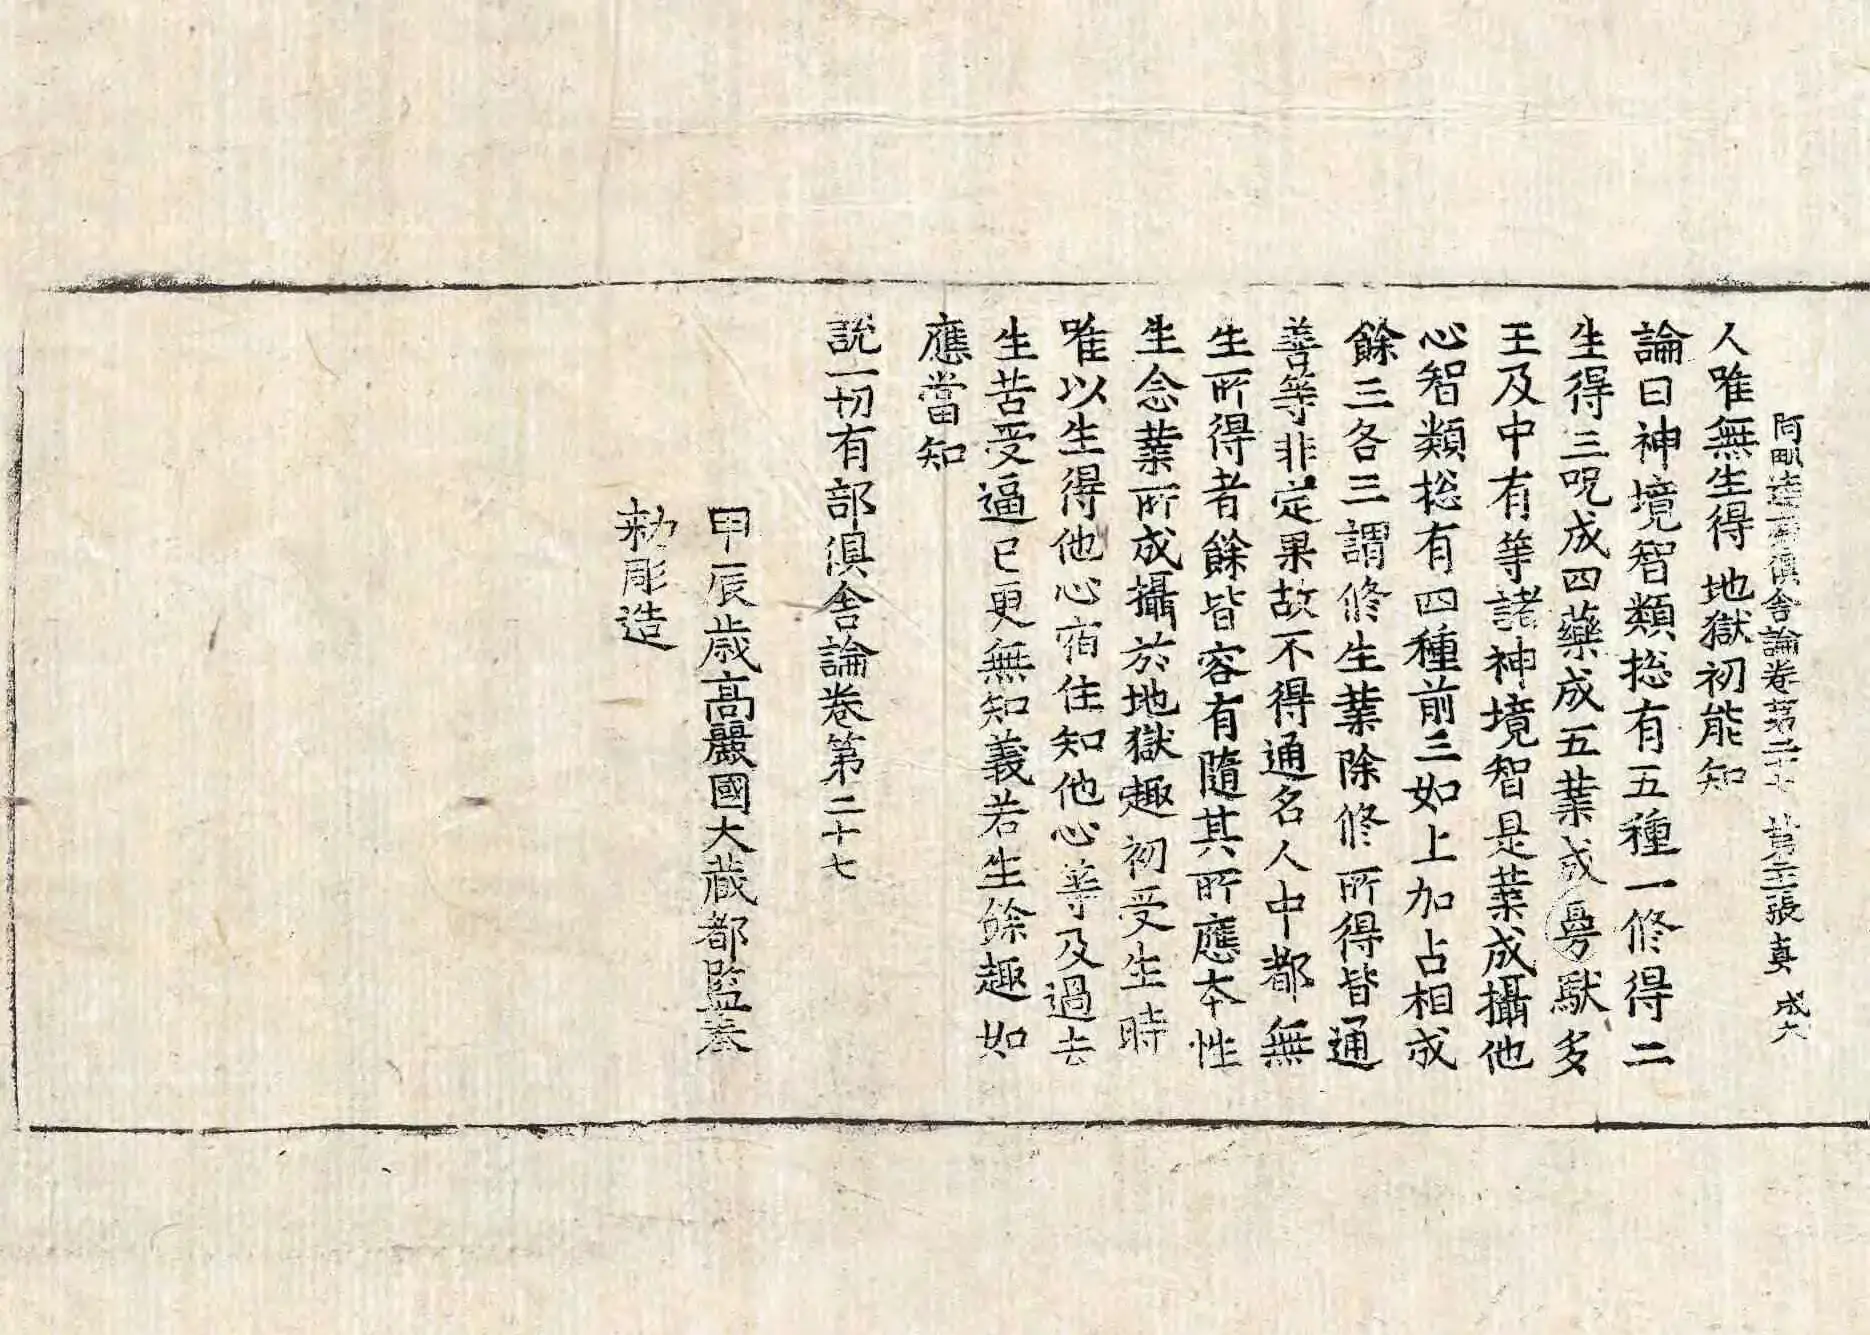 阿毗達磨俱舍論卷第二十七 張真 成六
人唯無生得 地獄初能知
論曰神境智類捴有五種一修得二
生得三呪成四藥成五業成曼馱多
王及中有等諸神境智是業成攝他
心智類捴有四種前三如上加占相成
餘三各三謂修生業除修所得皆通
善等非定果故不得通名人中都無
生所得者餘皆容有隨其所應本性
生念業所成攝於地獄趣初受生時
唯以生得他心宿住知他心等及過去
生苦受逼已更無知義若生餘趣如
應當知
說一切有部俱舍論卷第二十七
甲辰歲高麗國大藏都監奉
勑彫造